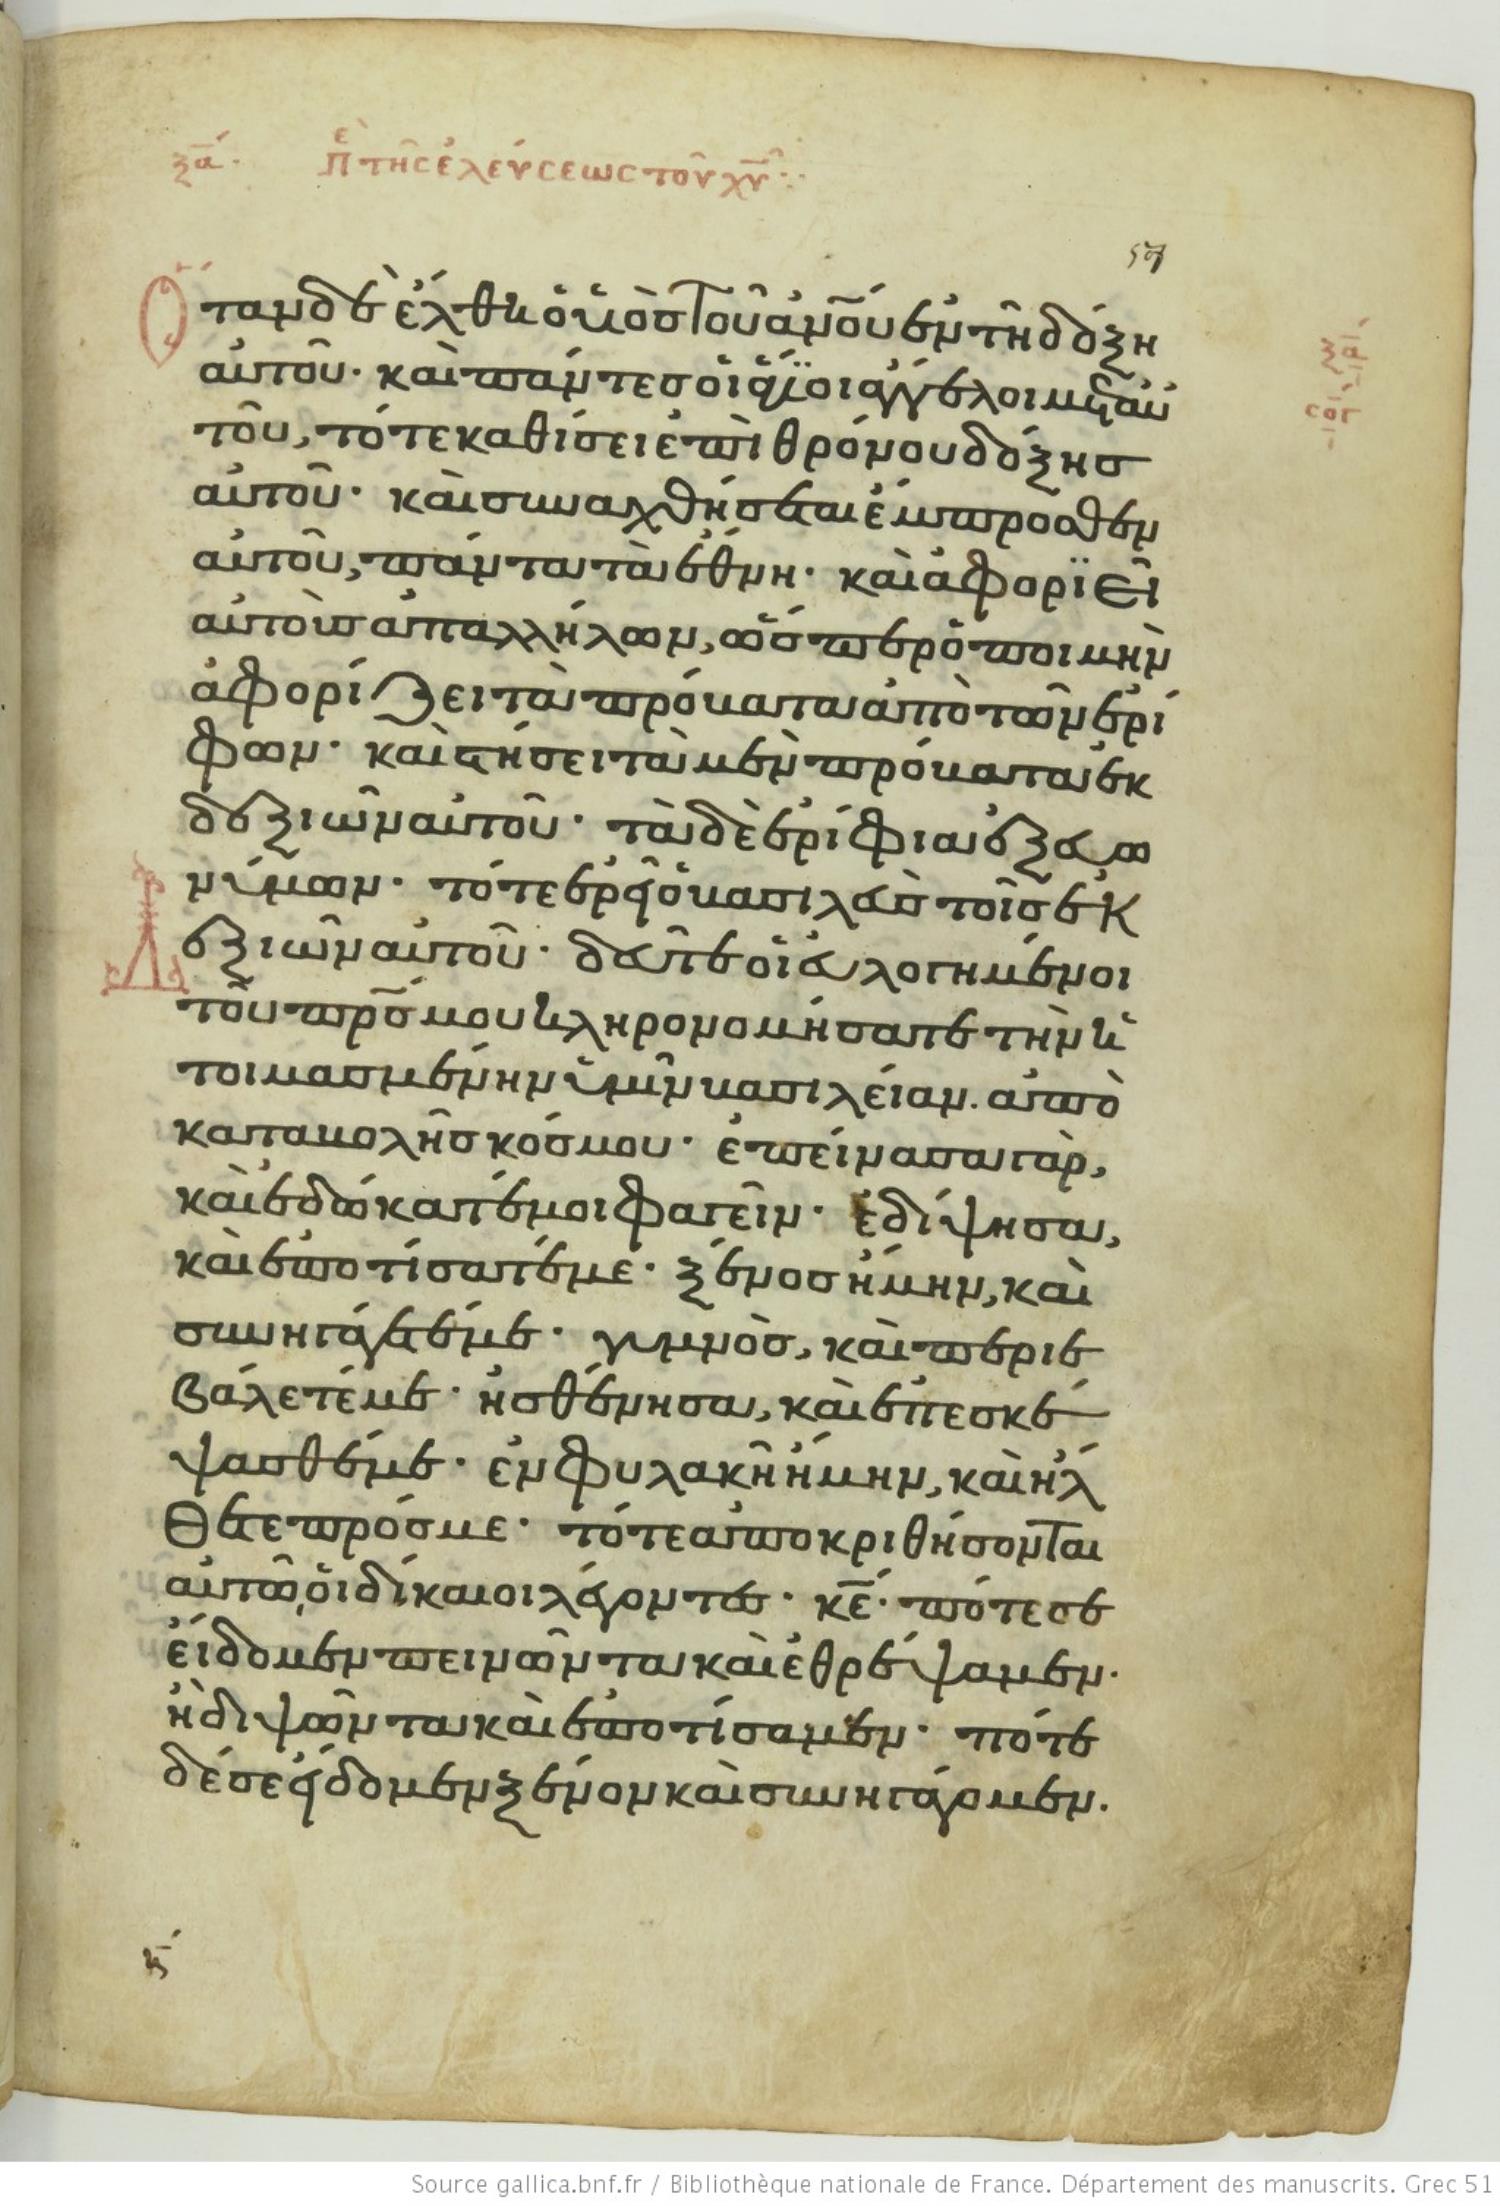 ξα΄. Πε τῆς ἐλεύσεως τοῦ χυ:
57
Ὅταν δὲ ἔλθη ὁ υἱὸς τοῦ ἀνου ἐν τῆ δόξη
αὐτοῦ· καὶ πάντες οἱ ἅγϊοι ἄγγελοι μετ αὐ
τοῦ, τότε καθίσει ἐπὶ θρόνου δόξης
αὐτοῦ· καὶ συναχθήσεται ἔμπροσθεν
αὐτοῦ, πάντα τὰ ἔθνη· καὶ ἀφορϊεῖ
αὐτοὺς ἀπαλλήλων, ὥσπερ ὁ ποιμὴν
ἀφορίζει τὰ πρόβατα ἀπὸ τῶν ἐρί
φων· καὶ στήσει τὰ μὲν πρόβατα ἐκ
δεξιῶν αὐτοῦ· τὰ δὲ ἐρίφια ἐξ εὐω
νύμων· τότε ἐρεῖ ὁ βασιλεὺς τοῖς ἐκ
Δεξιῶν αὐτοῦ· δεῦτε οἱ εὐλογημένοι
τοῦ πρσ μου κληρονομήσατε τὴν ἡ
τοιμασμένην ὑμῖν βασιλείαν. ἀπὸ
καταβολῆς κόσμου· ἐπείνασα γὰρ,
καὶ ἐδώκατέ μοι φαγεῖν· ἐδίψησα,
καὶ ἐποτίσατέ με· ξένος ἤμην, καὶ
συνηγάγετέ με· γυμνὸς, καὶ περιε
βάλετέ με· ἠσθένησα, καὶ ἐπεσκέ
ψασθέ με· ἐν φυλακῆ ἤμην, καὶ ἤλ
θετε πρός με· τότε ἀποκριθήσονται
αὐτῶ οἱ δίκαιοι λέγοντες· κε· πότε σε
εἴδομεν πεινῶντα καὶ ἐθρέψαμεν.
ἢ διψῶντα καὶ ἐποτίσαμεν· πότε
δέ σε εἴδομεν ξένον καὶ συνηγάγομεν.
ξα
σογ
Source gallica.bnf.fr / Bibliothèque nationale de France. Département des manuscrits. Grec 51